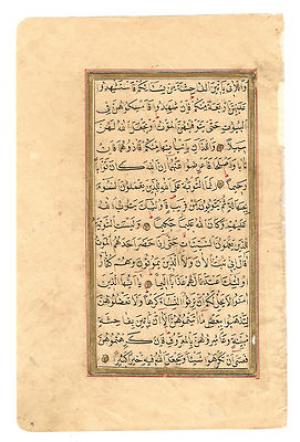 وَالّٰتِي يَأْتِينَ الْفَاحِشَةَ مِنْ نِسَائِكُمْ فَاسْتَشْهِدُوا
عَلَيْهِنَّ أَرْبَعَةً مِنْكُمْ فَإِنْ شَهِدُوا فَأَمْسِكُوهُنَّ فِي
الْبُيُوتِ حَتَّى يَتَوَفّٰهُنَّ الْمَوْتُ أَوْ يَجْعَلَ اللهُ لَهُنَّ
سَبِيلًا وَاللَّذَانِ يَأْتِيَانِهَا مِنْكُمْ فَآذُوهُمَا فَإِنْ
تَابَا وَأَصْلَحَا فَأَعْرِضُوا عَنْهُمَا إِنَّ اللهَ كَانَ تَوَّابًا
رَحِيمًا إِنَّمَا التَّوْبَةُ عَلَى اللهِ لِلَّذِينَ يَعْمَلُونَ السُّوءَ
بِجَهَالَةٍ ثُمَّ يَتُوبُونَ مِنْ قَرِيبٍ فَأُولٰئِكَ يَتُوبُ اللهُ
عَلَيْهِمْ وَكَانَ اللهُ عَلِيمًا حَكِيمًا وَلَيْسَتِ التَّوْبَةُ
لِلَّذِينَ يَعْمَلُونَ السَّيِّئَاتِ حَتَّى إِذَا حَضَرَ أَحَدَهُمُ الْمَوْتُ
قَالَ إِنِّي تُبْتُ الْآنَ وَلَا الَّذِينَ يَمُوتُونَ وَهُمْ كُفَّارٌ
أُولٰئِكَ أَعْتَدْنَا لَهُمْ عَذَابًا أَلِيمًا يَا أَيُّهَا الَّذِينَ
آمَنُوا لَا يَحِلُّ لَكُمْ أَنْ تَرِثُوا النِّسَاءَ كَرْهًا وَلَا تَعْضُلُوهُنَّ
لِتَذْهَبُوا بِبَعْضِ مَا آتَيْتُمُوهُنَّ إِلَّا أَنْ يَأْتِينَ بِفَاحِشَةٍ
مُبَيِّنَةٍ وَعَاشِرُوهُنَّ بِالْمَعْرُوفِ فَإِنْ كَرِهْتُمُوهُنَّ
فَعَسَى أَنْ تَكْرَهُوا شَيْئًا وَيَجْعَلَ اللهُ فِيهِ خَيْرًا كَثِيرًا